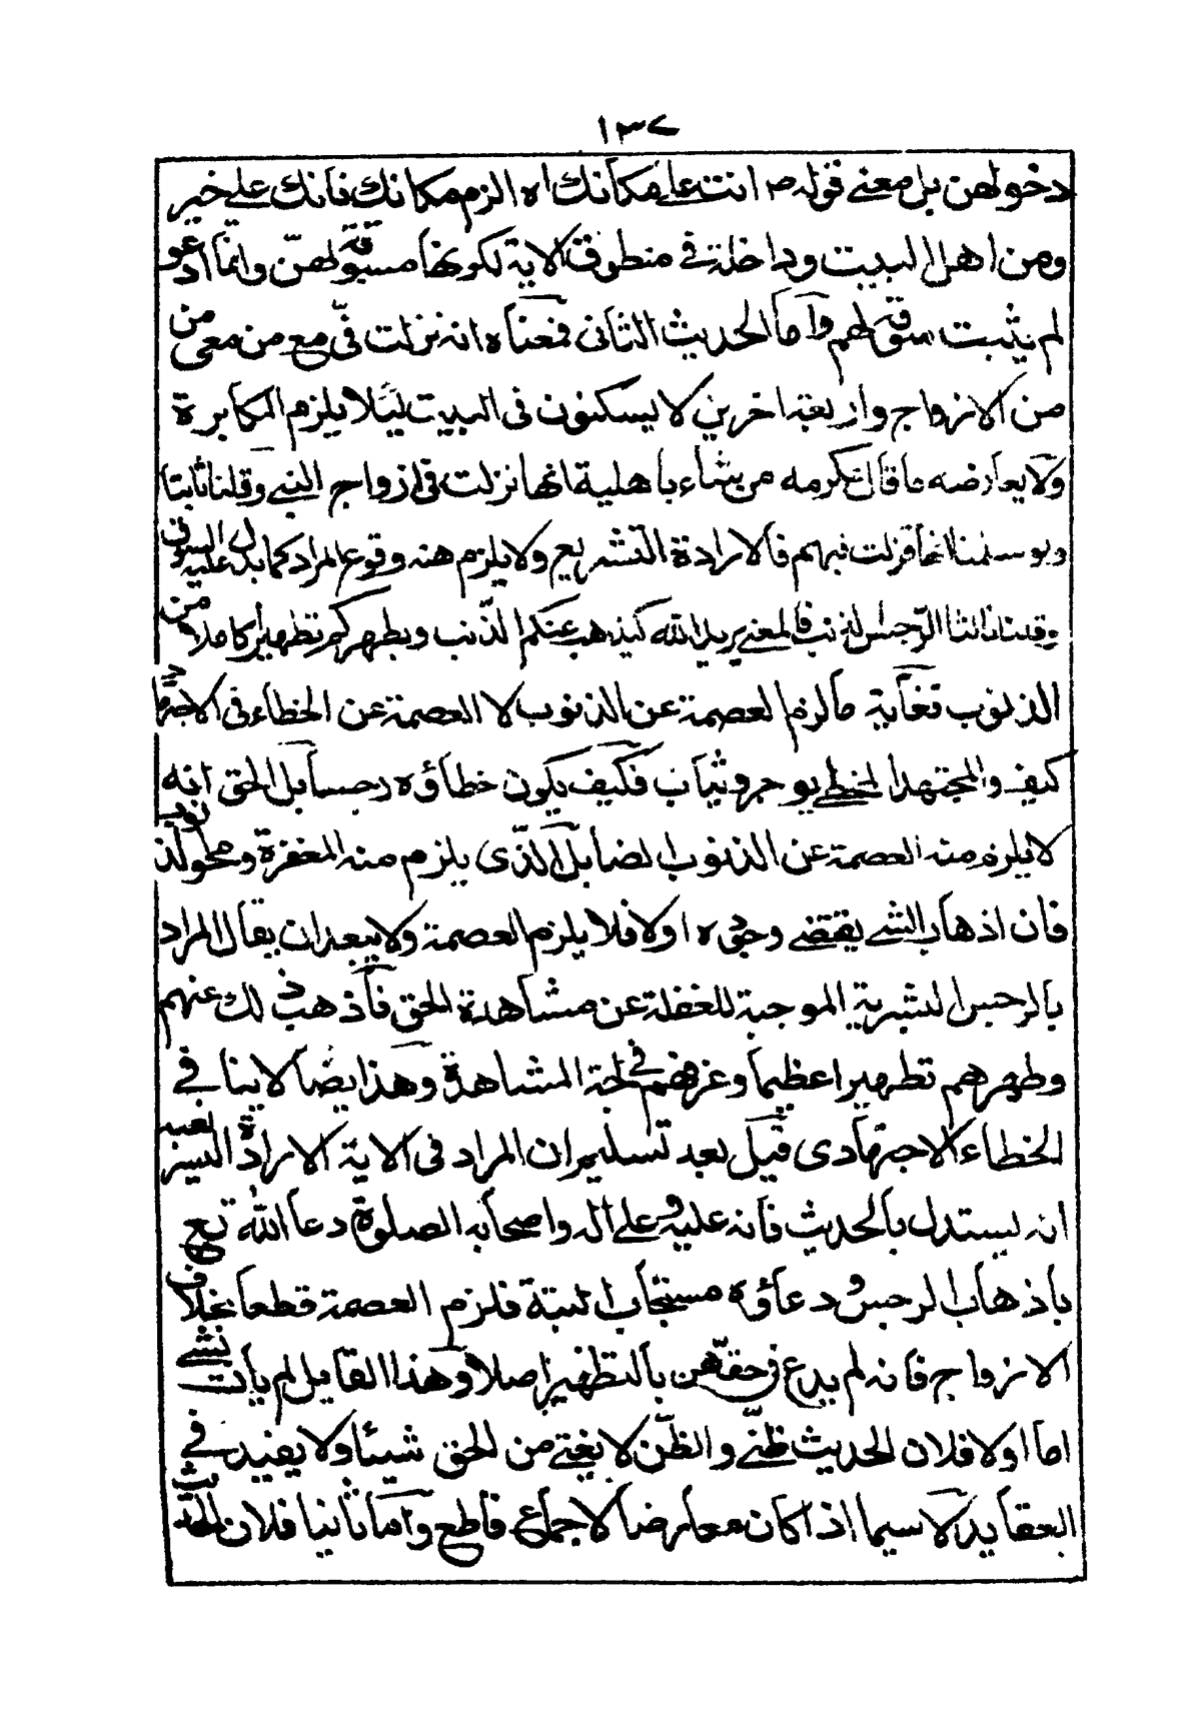 ١٣٧
دخولهن بل معنى قوله ص انت على مكانك اه الزم مكانك فانك على خير
ومن اهل البيت وداخلة في منطوق الاية لكونها مسوقة لهن وانما ادعو
لم يثبت سوقه لهم واما الحديث الثاني فمعناه انه نزلت فيّ مع من معي من
من الازواج واربعة اخرين لا يسكنون في البيت ليئلا يلزم المكابرة
ولا يعارضه ما قال عكرمه من شاء باهلية انها نزلت في ازواج النبي وقلنا ثابتا
ولو سلمنا انها نزلت فيهم فالارادة التشريع ولا يلزم منه وقوع المراد كما يدل عليه السوق
وقلنا ثالثا الرجس الذنب فالمعنى يريد الله ليذهب عنكم الذنب ويطهركم تطهيرا كاملا من
الذنوب فغاية ما لزم العصمة عن الذنوب لا العصمة عن الخطاء في الاجتهاد
كيف والمجتهد المخطي يوجر ويثاب فكيف يكون خطاؤه رجسا بل الحق انه
لا يلزم منه العصمة عن الذنوب ايضا بل الذي يلزم منه المغفرة ومحو الذنوب
فان اذهاب الشي يقتضي وجوده اولا فلا يلزم العصمة ولا يبعد ان يقال المراد
بالرجس البشرية الموجبة للغفلة عن مشاهدة الحق فاذهب ذلك عنهم
وطهرهم تطهيرا عظيما وغرقهم في لجة المشاهدة وهذا ايضا لا ينافي
الخطاء الاجتهادى قيل بعد تسليم ان المراد في الاية الارادة التشريعية
انه يستدل بالحديث فانه عليه وعلى اله واصحابه الصلوة دعا الله تع
باذهاب الرجس ودعاؤه مستجاب البتة فلزم العصمة قطعا بخلاف
الازواج فانه لم يدع في حقهن بالتطهير اصلا وهذا القايل لم يأت بشي
اما اولا فلان الحديث ظني والظن لا يغني من الحق شيئا ولا يفيد في
العقايد لا سيما اذا كان معارضا لاجماع قاطع واما ثانيا فلان الحديث